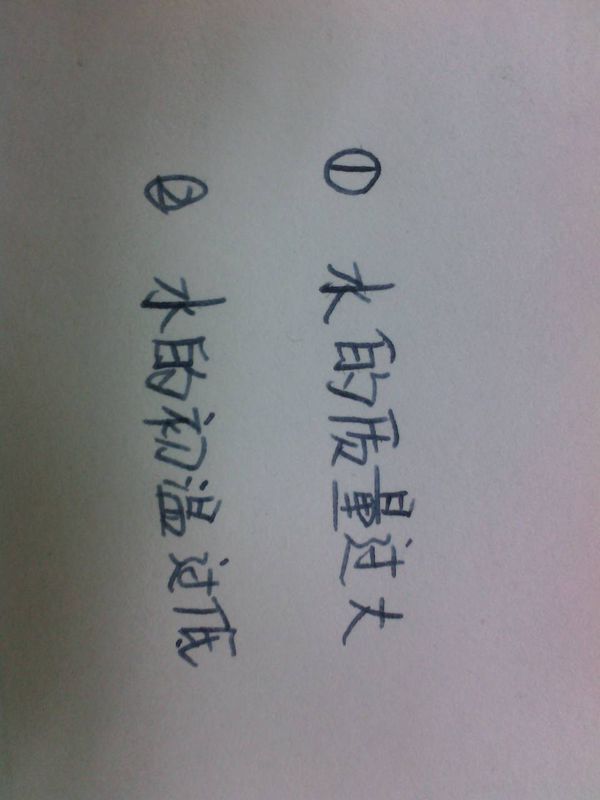 ① 水的质量过大
② 水的初温过低